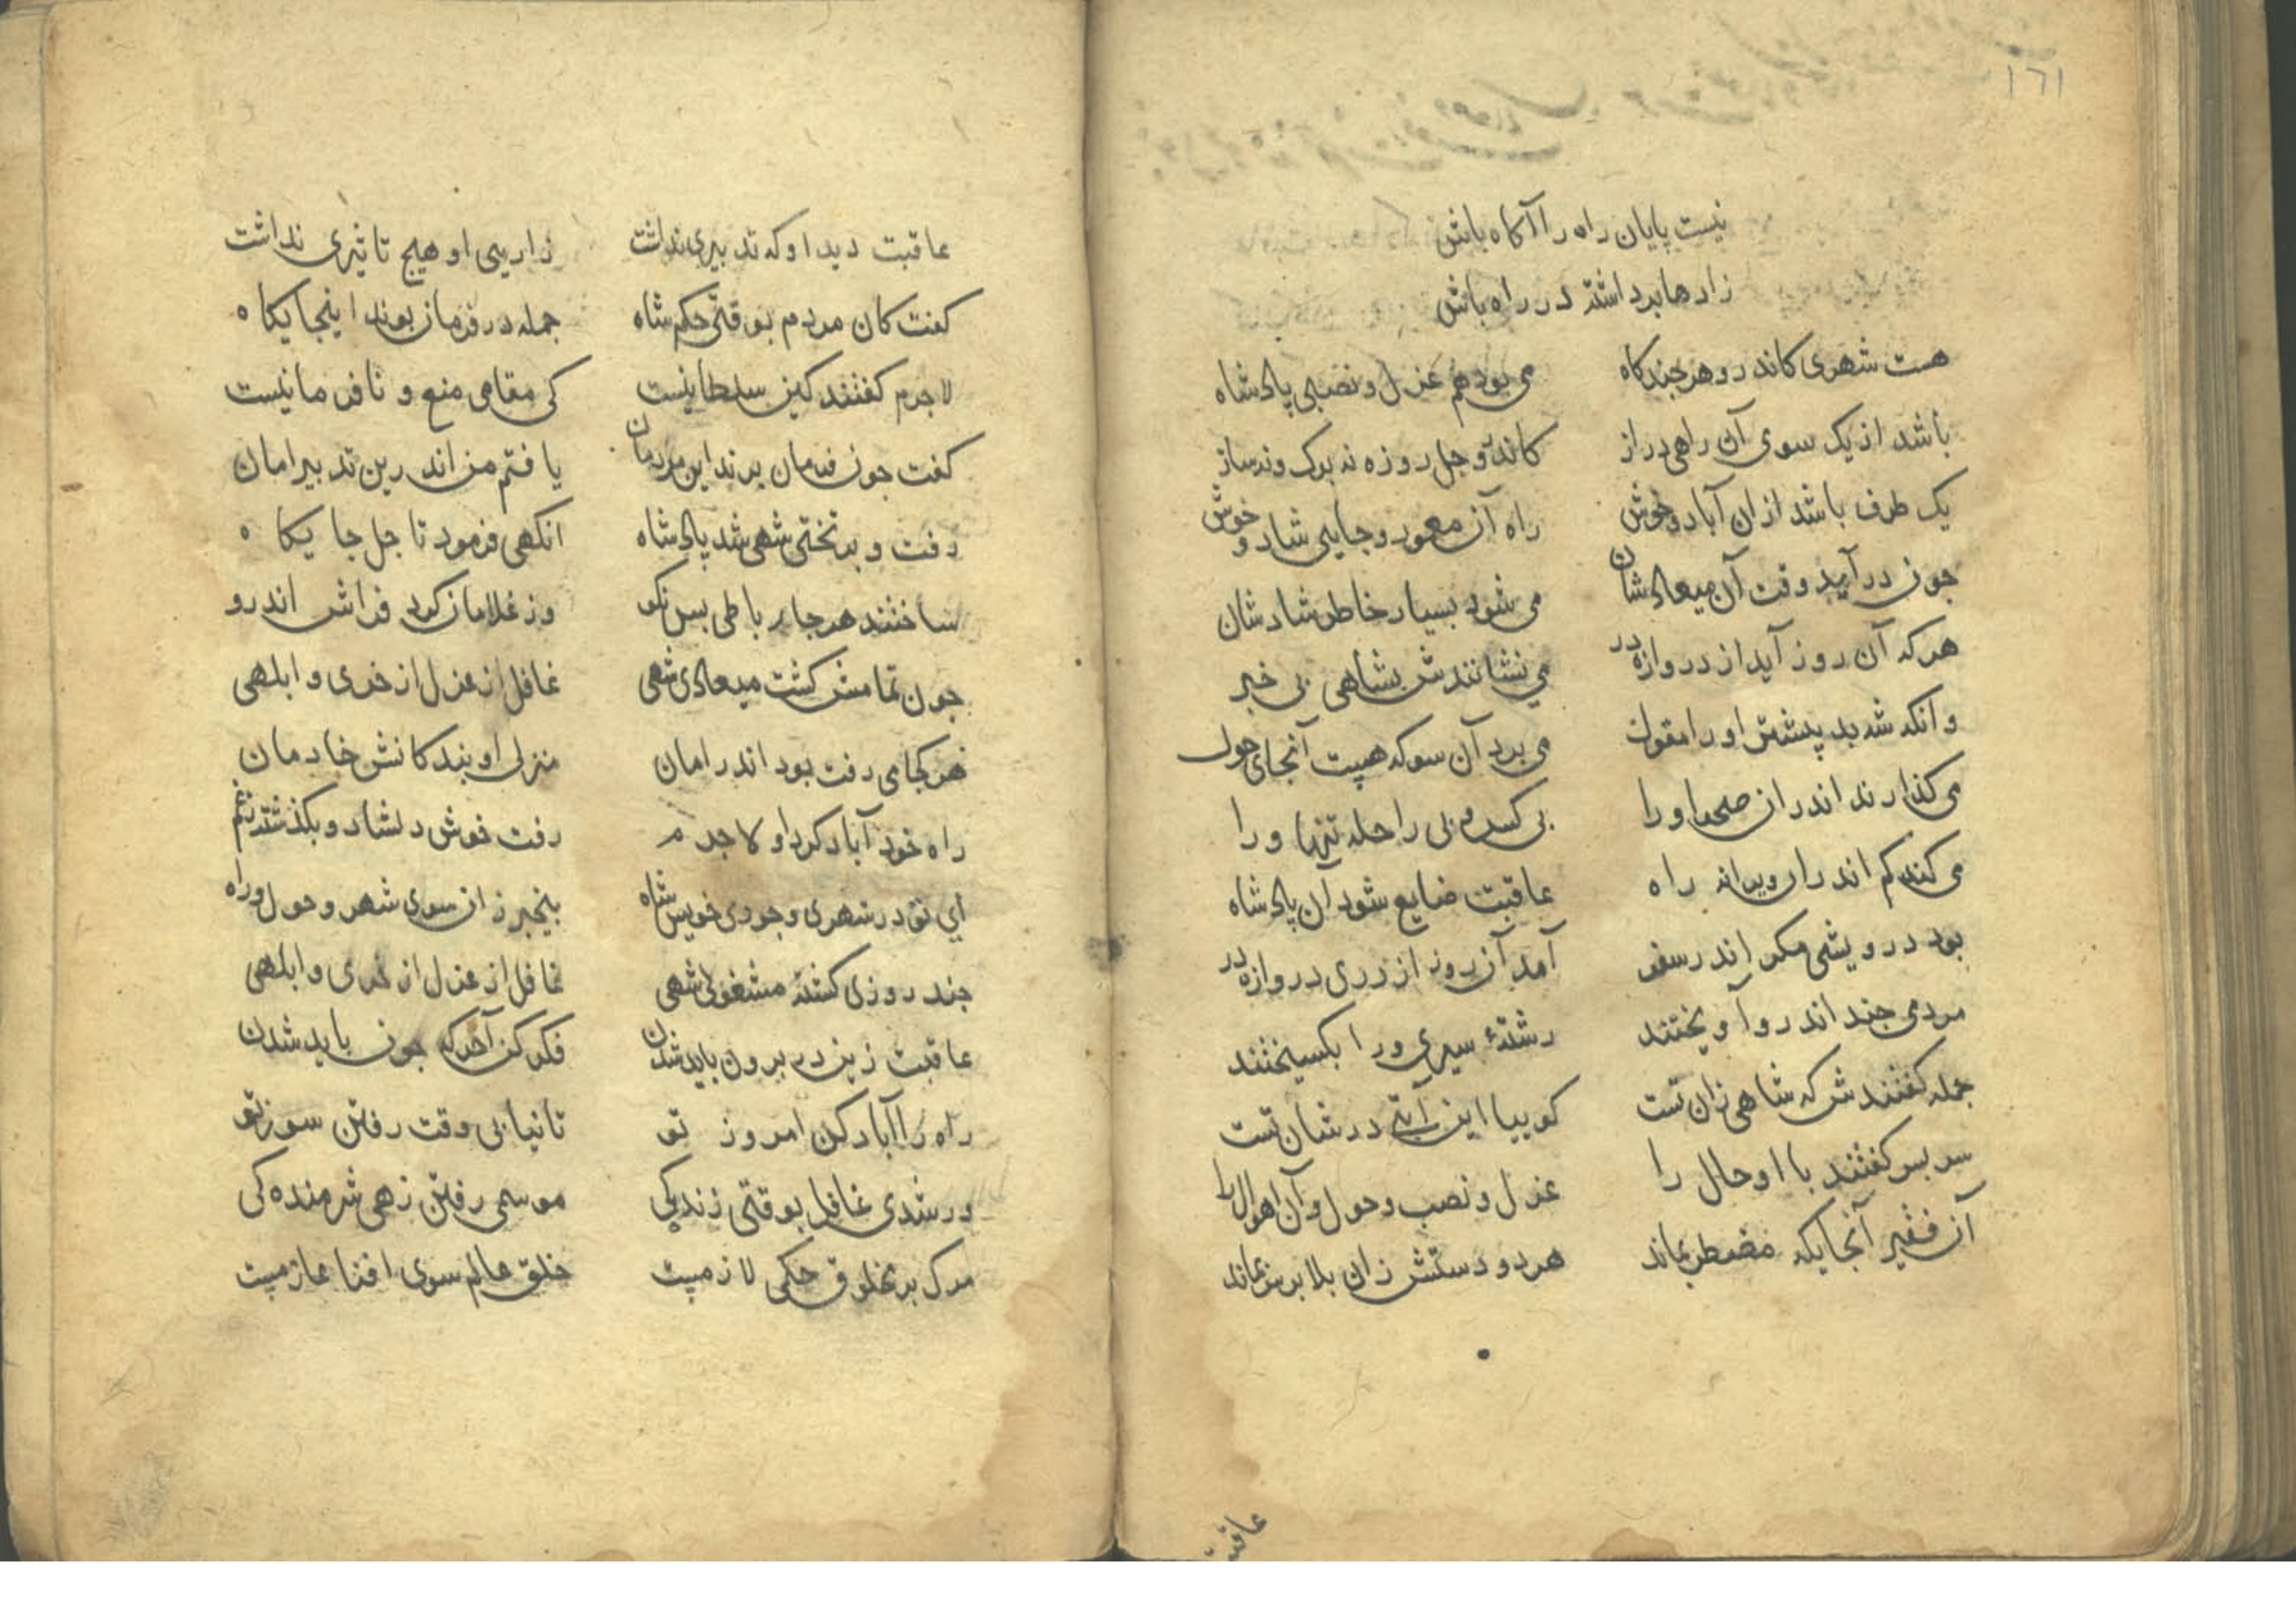 ١٦١
نیست پایان راه را آکاه باش
زادها برداشته در راه باش
هست شهری کاندرو هر جندکاه می بود هم عزل و نصبی پادشاه
باشد از یک سوی آن راهی دراز کاندرو جل روزه نه برک و نه ساز
یک طرف باشد ازان آباد و خوش راه آن معمور و جایی شاد و خوش
جون درآید وقت آن میعادشان می شود بسیار خاطر شادشان
هرکه آن روز آید از دروازه در می نشانندش بشاهی بی خبر
وانکه شد بد پیشتر او را می برد آن سو که هست آنجای هول
می کذارند اندران صحرا ورا بی کس و بی راحله تنها ورا
می کند کم اندران ویرانه راه عاقبت ضایع شود آن پادشاه
بود درویشی مکر اندر سفر آمد آن روز از دری دروازه در
مردمی جند اندرو آویختند رشتهٔ سیری ورا بکسیختند
جمله کفتندش که شاهی زان تست کوییا این آیتی در شان تست
سر بسر کفتند با او حال را عزل و نصب و هول و آن اهوال را
آن فقیر آنجایکه مضطر بماند هر دو دستش زان بلا بر سر بماند
عاقبت
عاقبت دید او که تدبیری نداشت زاریی او هیج تاثیری نداشت
کفت کان مردم بوقتی حکم شاه جمله در فرمان بوند اینجایکاه
لاجرم کفتند کین سلطانیست کی مقامی منع و نافرمانیست
کفت جون فرمان برند این مردمان یافتم من اندرین تدبیر امان
رفت و بر تختی شهی شد پادشاه انکهی فرمود تا جل جایکاه
ساختند هر جا رباطی بس نکو وز غلامان کرد فراش اندرو
جون تمامش کشت میعادی شهی غافل از عزل از خری و ابلهی
هر کجا می رفت بود اندر امان منزلی او بندکانش خادمان
راه خود آباد کرد او لاجرم رفت خوش دلشاد و بکذشت ز غم
ای تو در شهری وجودی خویش شاه بیخبر زان سوی شهر و هول راه
جند روزی کشته مشغولی شهی غافل از عزل از خری و ابلهی
عاقبت زین در برون باید شدن فکر کن آخر که جون باید شدن
راه را آباد کن امروز تو تا نیابی وقت رفتن سوز تو
ور شدی غافل بوقتی زندکی موسمی رفتن زهی شرمنده کی
مرک بر مخلوق حکمی لازمست خلق عالم سوی افنا عازمست